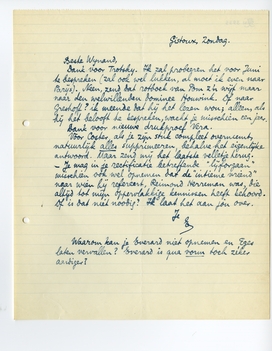 Gistoux, Zondag.
Beste Wynand,
Dank voor Trotsky. Ik zal probeeren het voor Juni
te bespreken (zal ook wel lukken, al moet ik even naar
Parijs). Neen, zend dat rotboek van Pom z'n wijf maar
naar den welwillenden Dominee Houwink. Of naar
Greshoff? ik meende dat hij het lezen wou; alleen, als
hij het belooft te bespreken, wacht je misschien een jaar.
Dank voor nieuwe drukproef Vera.
Voor Coster, als je zijn stuk compleet overneemt,
natuurlijk alles supprimeeren, behalve het eigenlijke
antwoord. Maar zend mij het laatste velletje terug.
— Je mag in de rectificatie betreffende "Lijforgaan"
misschien ook wel opnemen dat de "intieme vriend"
naar wien hij refereert, Reimond Herreman was, die
altijd tot mijn oppervlakkige kennissen heeft behoord.
Of is dat niet noodig? Ik laat het aan jou over.
Je
E
Waarom kan je Everard niet opnemen en Eges
laten vervallen? Everard is qua vorm toch zeker
aardiger!